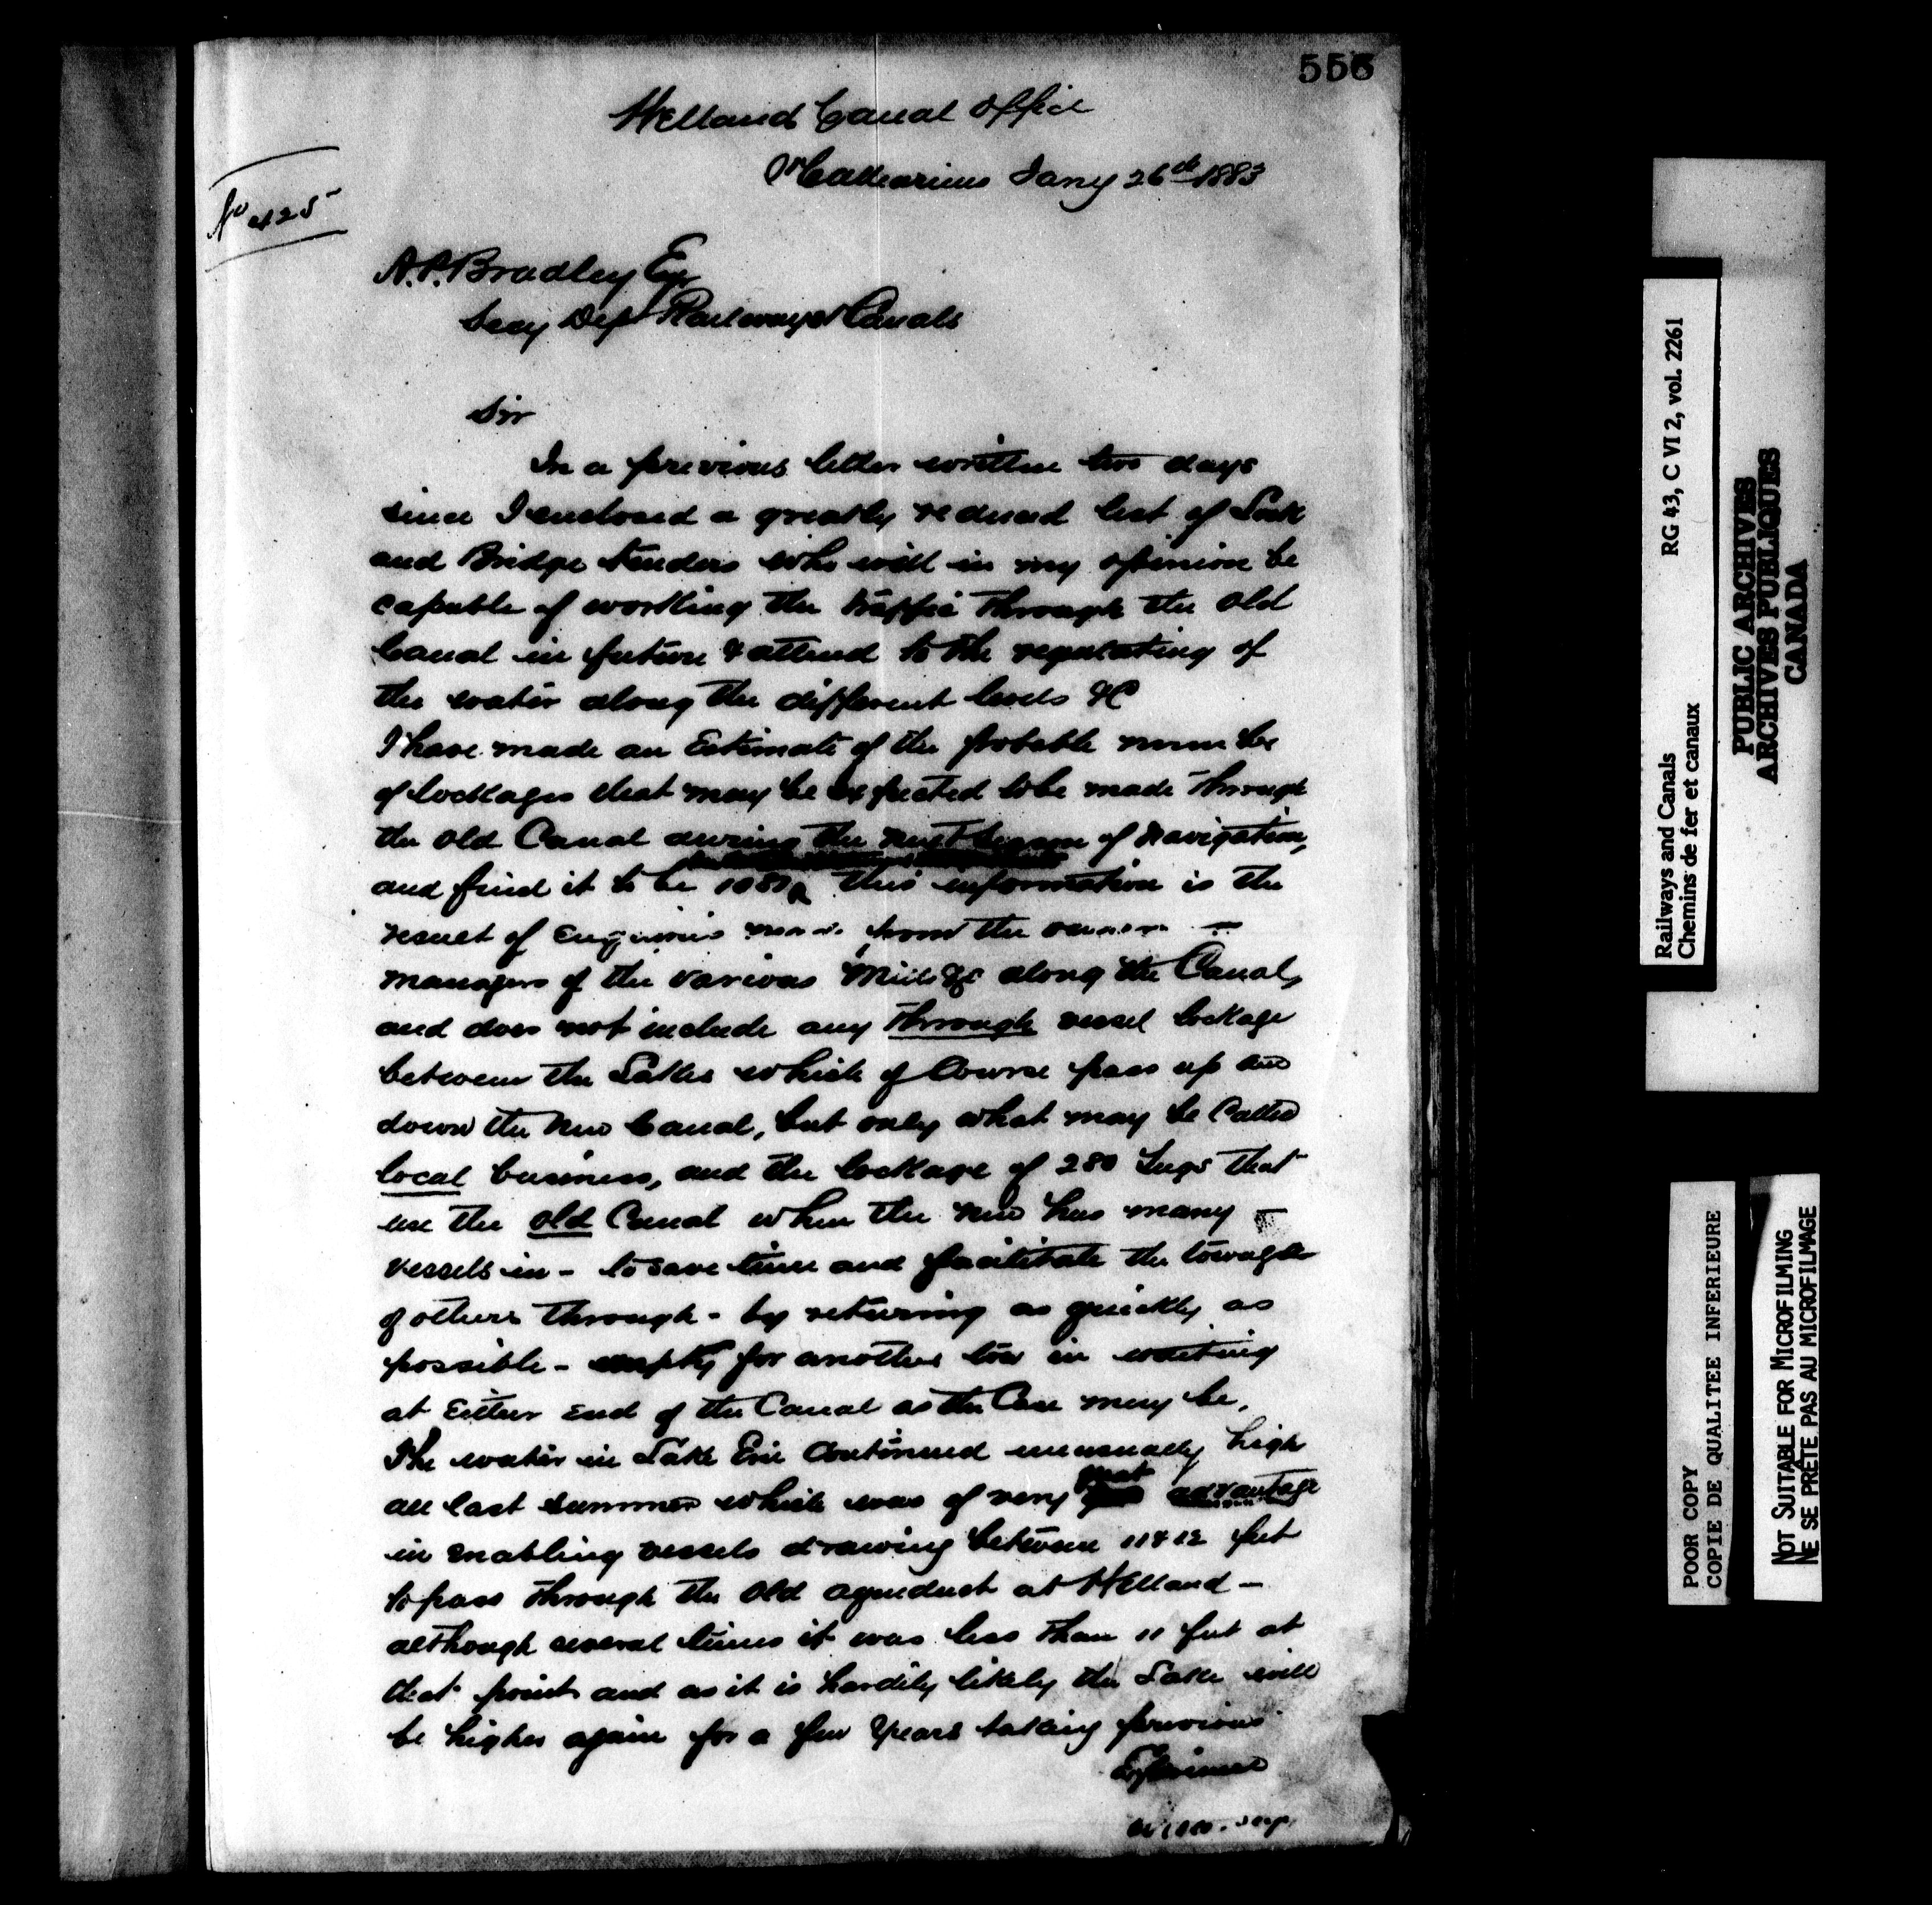 556
Welland Canal Office
St Catharines Jany 26th 1883
No 425
A.P. Bradley Esq
Secy Dept Railways & Canals
Sir
In a previous letter written two days
since I enclosed a greatly reduced list of Lock
and Bridge tenders who will in my opinion be
capable of working the traffic through the old
Canal in future & attend to the regulating of
the water along the different levels &c
I have made an Estimate of the probable number
of lockages that may be expected to be made through
the old Canal during the next season of navigation,
and find it to be this information is the
result of Enquiries made from the
managers of the various Mills &c along the Canal,
and does not include any through vessel lockage
between the Lakes which of Course pass up and
down the New Canal, but only what may be Called
local business, and the lockage of 280 tugs that
use the old Canal when the new has many
vessels in - to save time and facilitate the towage
of others through - by returning as quickly as
possible - empty for another tow in waiting
at Either End of the Canal as the Case may be.
The water in Lake Erie Continued unusually high
all last summer which was of very great advantage
in enabling vessels drawing between 11 & 12 feet
to pass through the old aqueduct at Welland -
although several times it was less than 11 feet at
that point and as it is hardily likely the Lake will
be higher again for a few Years taking previous
Experience
Railways and Canals RG 43, C VI 2, vol. 2261
Chemins de fer et canaux
PUBLIC ARCHIVES
ARCHIVES PUBLIQUES
CANADA
POOR COPY
COPIE DE QUALITEE INFERIEURE
NOT SUITABLE FOR MICROFILMING
NE SE PRÊTE PAS AU MICROFILMAGE